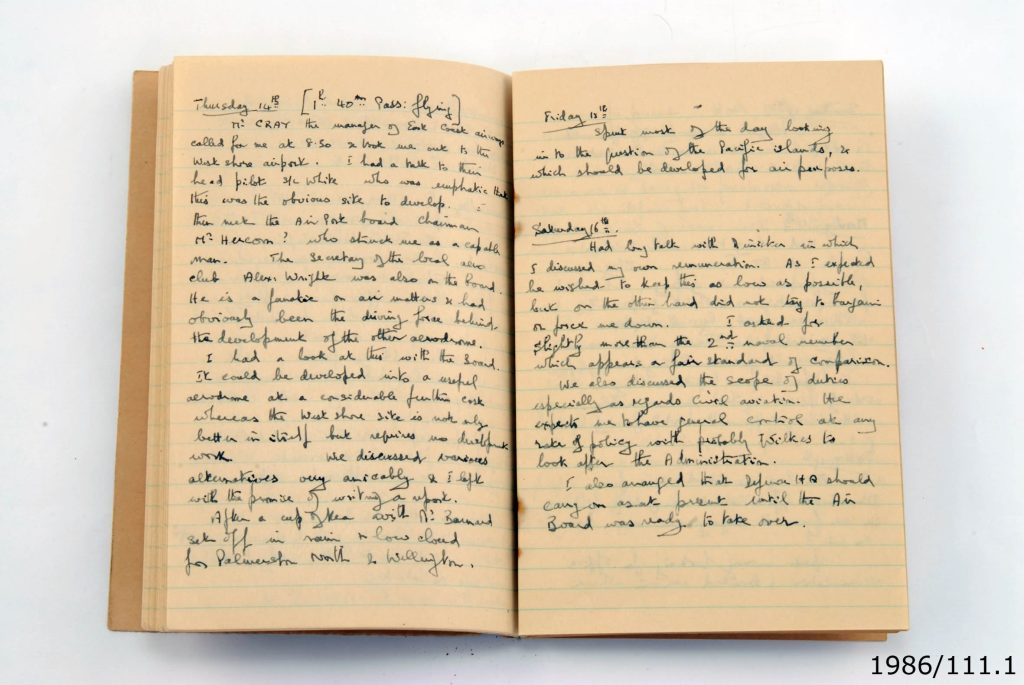 Thursday 14th [1h 40m Pass: flying]
Mr CRAY the manager of East Coast airways
called for me at 8.50 & took me out to the
West shore airport. I had a talk to their
head pilot S/L White who was emphatic that
this was the obvious site to develop.
then met the Air Port board chairman
Mr Hercom? who struck me as a capable
man. The Secretary of the local aero
club Alex. Wright was also on the board.
He is a fanatic on air matters & had
obviously been the driving force behind
the development of the other aerodrome.
I had a look at this with the Board.
It could be developed into a useful
aerodrome at a considerable further cost
whereas the West shore site is not only
better in itself but requires no development
work. We discussed various
alternatives very amicably & I left
with the promise of writing a report.
After a cup of tea with Mr Barnard
set off in rain & low cloud
for Palmerston North & Wellington.
Friday 15th
Spent most of the day looking
in to the question of the Pacific islands, &
which should be developed for air purposes.
Saturday 16th.
Had long talk with Minister in which
I discussed my own remuneration. As I expected
he wished to keep this as low as possible,
but on the other hand did not try to bargain
or force me down. I asked for
slightly more than the 2nd naval member
which appears a fair standard of comparison.
We also discussed the scope of duties
especially as regards Civil aviation. He
expects me to have general control at any
rate of policy with probably Wilkes to
look after the Administration.
I also arranged that Defence HQ should
carry on as at present until the Air
Board was ready to take over.
1986/111.1